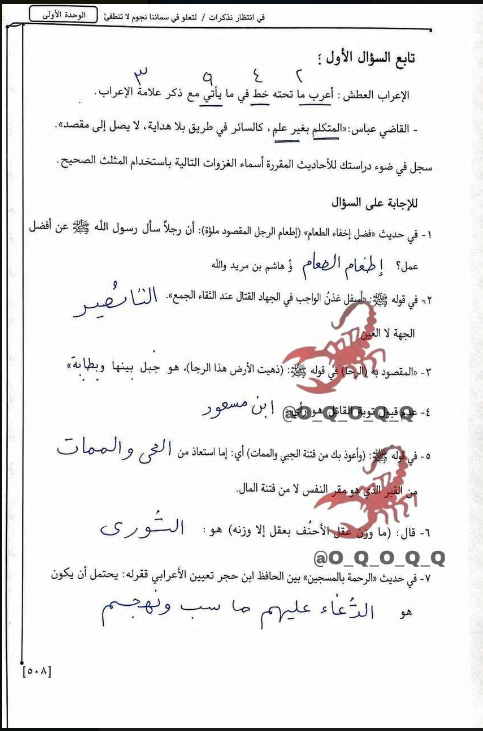 في انتظار نذكرات / لتعلو في سمائنا نجوم لا تنطفئ
الوحدة الأولى
تابع السؤال الأول :
٢ ٤ ٩ ٣
الإعراب العطش : أعرب ما تحته خط في ما يأتي مع ذكر علامة الإعراب.
- القاضي عباس: «المتكلم بغير علم، كالسائر في طريق بلا هداية، لا يصل إلى مقصد».
سجل في ضوء دراستك للأحاديث المقررة أسماء الغزوات التالية باستخدام المثلث الصحيح.
للإجابة على السؤال
١- في حديث «فضل إخفاء الطعام» (إطعام الرجل المقصود ملؤة): أن رجلاً سأل رسول الله ﷺ عن أفضل
عمل؟ إطعام الطعام ؤ هاشم بن مريد والله
٢- في قوله ﷺ: «أسفل عَذنُ الواجب في الجهاد القتال عند التقاء الجمع». التأصير
الجهة لا العين
٣- «المقصود بـ (الرحا) في قوله ﷺ: (ذهبت الأرض هذا الرجا)، هو جبل بينها وبطابة»
٤- عدم قبول توبة القاتل هو رأي: ابن مسعود
@O_Q_O_Q_Q
٥- في قوله ﷺ: (وأعوذ بك من فتنة الجبي والممات) أي: إما استعاذ من المحى والممات
من القبر الذي هو مقر النفس لا من فتنة المال.
٦- قال: (ما وزن عقل الأحنُف بعقل إلا وزنه) هو : الشورى
@O_Q_O_Q_Q
٧- في حديث «الرحمة بالمسجين» بين الحافظ ابن حجر تعيين الأعرابي فقرله: يحتمل أن يكون
هو الدُعاء عليهم ما سب ونهجم
[٥٠٨]